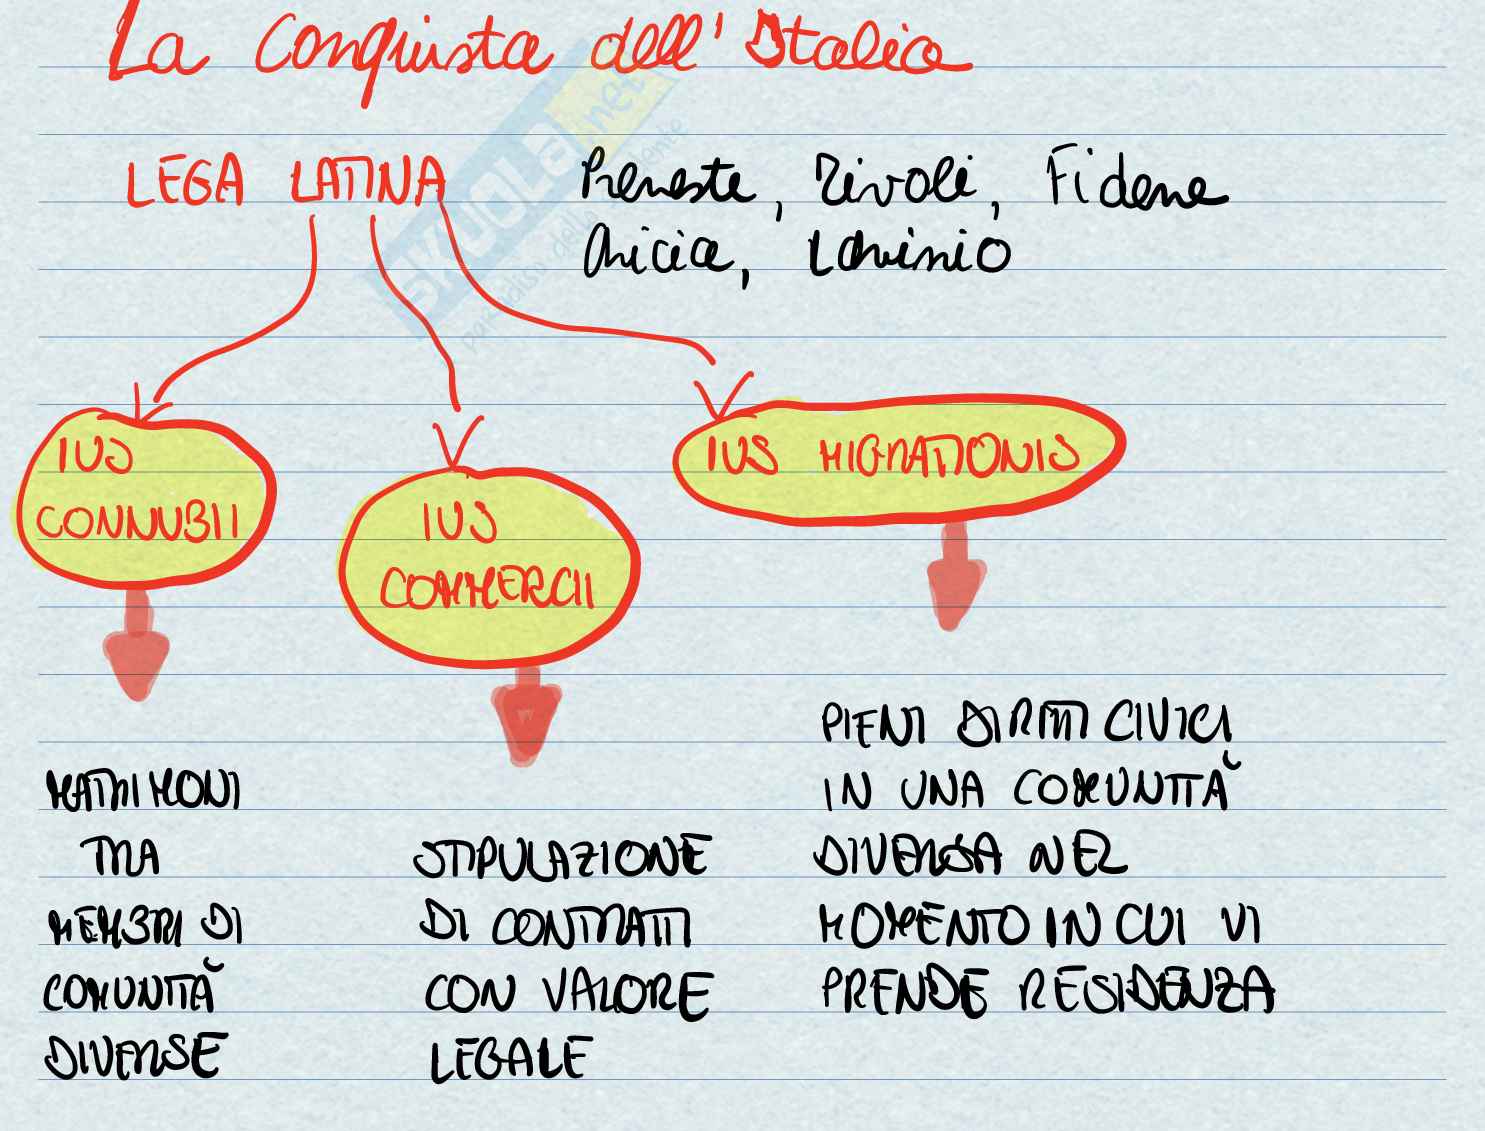 La Conquista dell'Italia
LEGA LATINA
Preneste, Tivoli, Fidene
Aricia, Lavinio
IUS
CONNUBII
IUS
COMMERCII
IUS MIGRATIONIS
MATRIMONI
TRA
MEMBRI DI
COMUNITÀ
DIVERSE
STIPULAZIONE
DI CONTRATTI
CON VALORE
LEGALE
PIENI DIRITTI CIVICI
IN UNA COMUNITTÀ
DIVERSA NEL
MOMENTO IN CUI VI
PRENDE RESIDENZA
SKUOLA.net